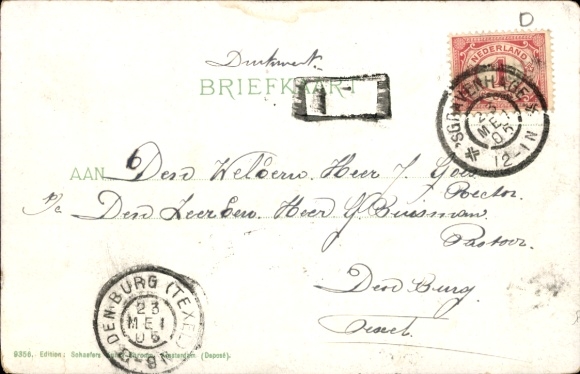 D
Drukwerk.
BRIEFKAART
NEDERLAND
1
'S GRAVENHAGE
23
MEI
05
12-1N
AAN Den WelEerw. Heer J. Goes
Rector.
p/a Den ZeerEerw. Heer G. Buisman.
Pastoor.
Den Burg
Texel.
DEN BURG (TEXEL)
23
MEI
05
9356, Edition: Schaefers Amsterdam (Deposé).